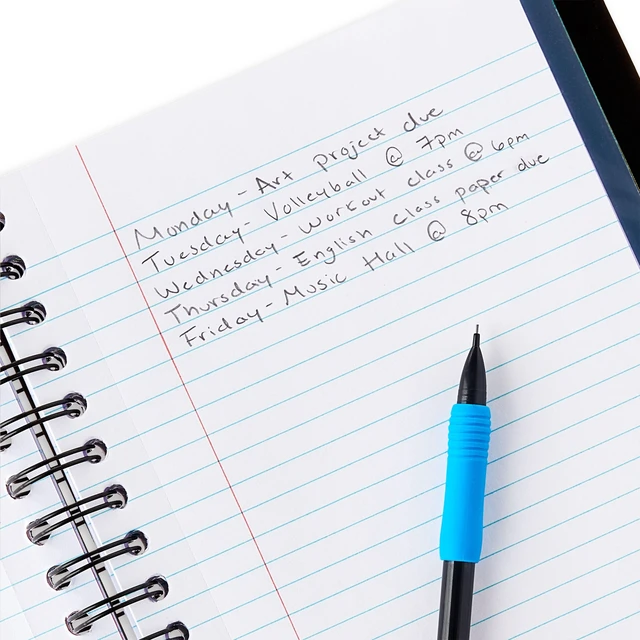 Monday - Art project due
Tuesday - Volleyball @ 7pm
Wednesday - Workout class @ 6pm
Thursday - English class paper due
Friday - Music Hall @ 8pm